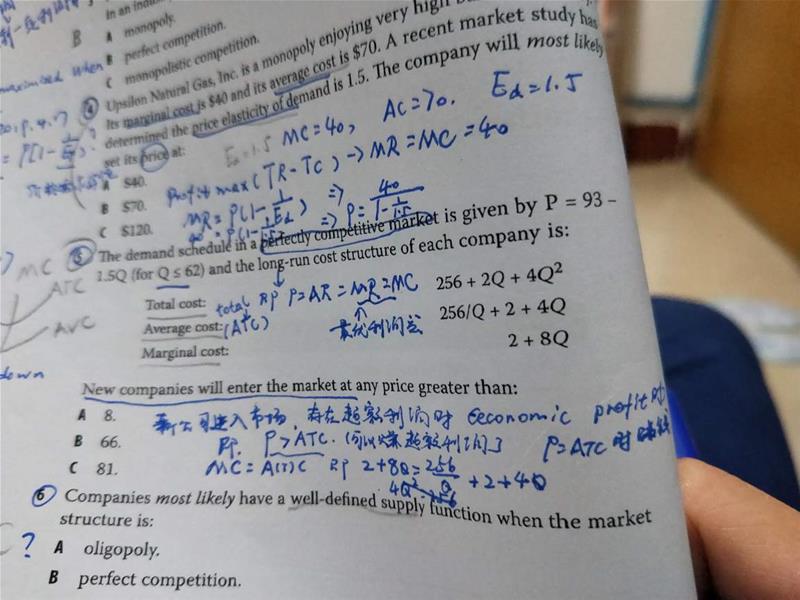 in an indu
B A monopoly.
B perfect competition.
C monopolistic competition.
4 Upsilon Natural Gas, Inc. is a monopoly enjoying very high
Its marginal cost is $40 and its average cost is $70. A recent market study has
determined the price elasticity of demand is 1.5. The company will most likely
set its price at:
MC=40, AC=70. Ed=1.5
Ed=1.5
A $40.
Profit max (TR-TC) → MR=MC=40
B $70.
MR=P(1-1/Ed) ⇒ P=40/(1-1/1.5)
C $120.
5 The demand schedule in a perfectly competitive market is given by P = 93 –
1.5Q (for Q ≤ 62) and the long-run cost structure of each company is:
MC
ATC
AVC
Total cost: 256 + 2Q + 4Q²
total 即 P=AR=MR=MC
Average cost: 256/Q + 2 + 4Q
(ATC)
Marginal cost: 2 + 8Q
down
New companies will enter the market at any price greater than:
A 8.
新公司进入市场,存在超额利润时 economic profit时
B 66.
即 P>ATC. (可以赚超额利润) P=ATC时
C 81.
MC=ATC 即 2+8Q=256/Q+2+4Q
4Q²=256
6 Companies most likely have a well-defined supply function when the market
structure is:
?
A oligopoly.
B perfect competition.